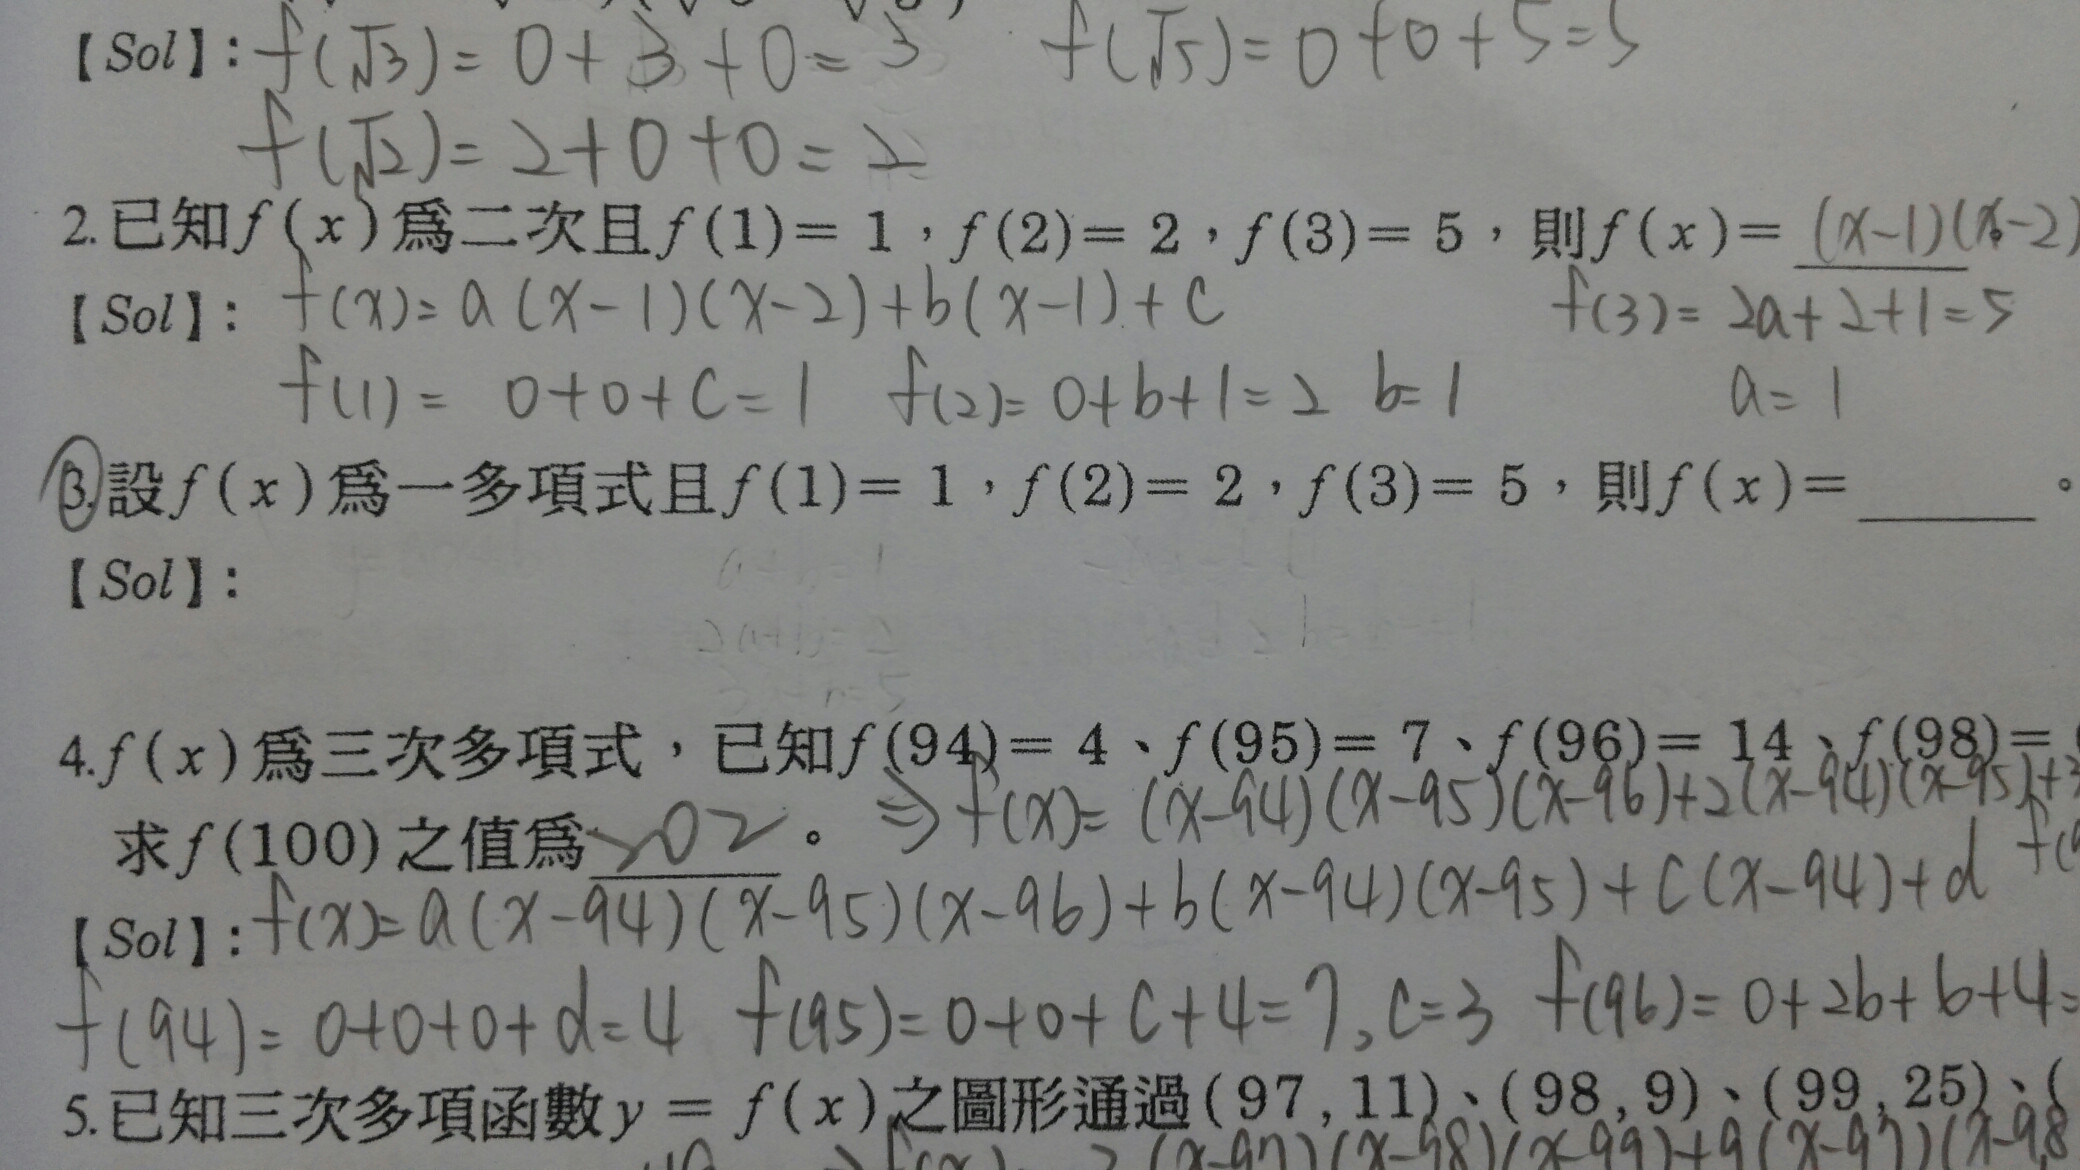 【Sol】: f(√3)= 0+3+0= 3 f(√5)= 0+0+5=5
f(√2)= 2+0+0= 2
2.已知f(x)為二次且f(1)= 1，f(2)= 2，f(3)= 5，則f(x)= (x-1)(x-2)
【Sol】: f(x)= a(x-1)(x-2)+b(x-1)+c f(3)= 2a+2+1=5
f(1)= 0+0+c=1 f(2)= 0+b+1=2 b=1 a=1
3.設f(x)為一多項式且f(1)= 1，f(2)= 2，f(3)= 5，則f(x)=______。
【Sol】:
4.f(x)為三次多項式，已知f(94)= 4、f(95)= 7、f(96)= 14、f(98)=
⇒ f(x)= (x-94)(x-95)(x-96)+2(x-94)(x-95)+3
求f(100)之值為 202。
【Sol】: f(x)= a(x-94)(x-95)(x-96)+b(x-94)(x-95)+c(x-94)+d
f(94)= 0+0+0+d=4 f(95)= 0+0+c+4=7, c=3 f(96)= 0+2b+6+4=
5.已知三次多項函數y = f(x)之圖形通過(97,11)、(98,9)、(99,25)、(
(x-97)(x-98)(x-99)+9(x-97)(x-98